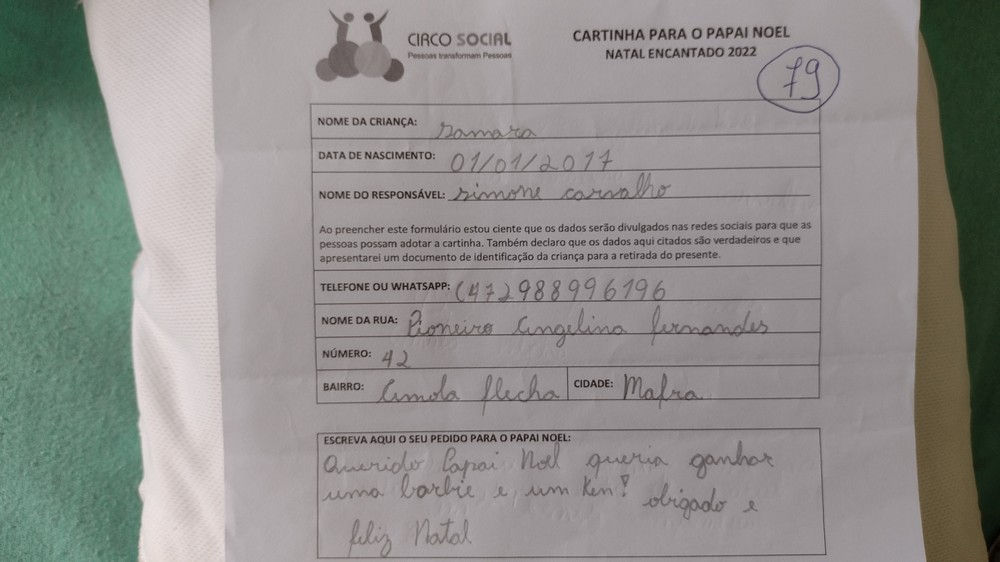 CIRCO SOCIAL
Pessoas transformam Pessoas
CARTINHA PARA O PAPAI NOEL
NATAL ENCANTADO 2022
79
NOME DA CRIANÇA: samara
DATA DE NASCIMENTO: 01/01/2017
NOME DO RESPONSÁVEL: simone carvalho
Ao preencher este formulário estou ciente que os dados serão divulgados nas redes sociais para que as
pessoas possam adotar a cartinha. Também declaro que os dados aqui citados são verdadeiros e que
apresentarei um documento de identificação da criança para a retirada do presente.
TELEFONE OU WHATSAPP: (472988996196
NOME DA RUA: Pioneiro Angelino fernandes
NÚMERO: 42
BAIRRO: Amola flecha CIDADE: Mafra
ESCREVA AQUI O SEU PEDIDO PARA O PAPAI NOEL:
Querido Papai Noel queria ganhar
uma barbie e um Ken! obrigado e
feliz Natal